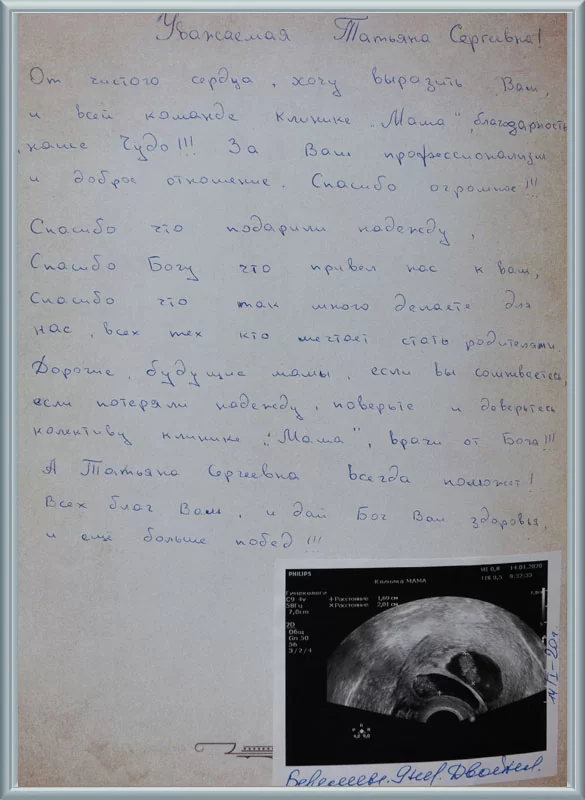 Уважаемая Татьяна Сергеевна!
От чистого сердца, хочу выразить Вам,
и всей команде клинике „Мама", благодарность
наше Чудо!!! За Ваш профессионализм
и доброе отношение. Спасибо огромное!!!
Спасибо что подарили надежду,
Спасибо Богу что привел нас к вам,
Спасибо что так много делаете для
нас, всех тех кто мечтает стать родителями.
Дорогие, будущие мамы, если вы сомневаетесь,
если потеряли надежду, поверьте и доверьтесь
колективу клинике „Мама", врачи от Бога!!!
А Татьяна Сергеевна всегда поможет!
Всех благ Вам, и дай Бог Вам здоровья,
и ещё больше побед!!!
PHILIPS
MI 0,8 14.01.2020
Клиника МАМА
TIB 0,5 9:27:33
Гинекологи
C9 4v + Расстояние 1,69 см
58Гц × Расстояние 2,01 см
7,0cm
2D
Общ
Gn 50
56
3/2/4
14/I-20г.
Двойня.